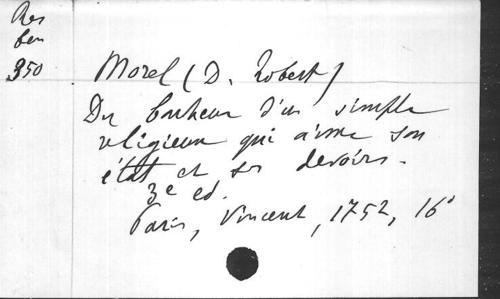 Res
ben
350
Morel (D. Robert)
Du bonheur d'un simple
religieux qui aime son
état et ses devoirs.
3e ed.
Paris, Vincent, 1752, 16°